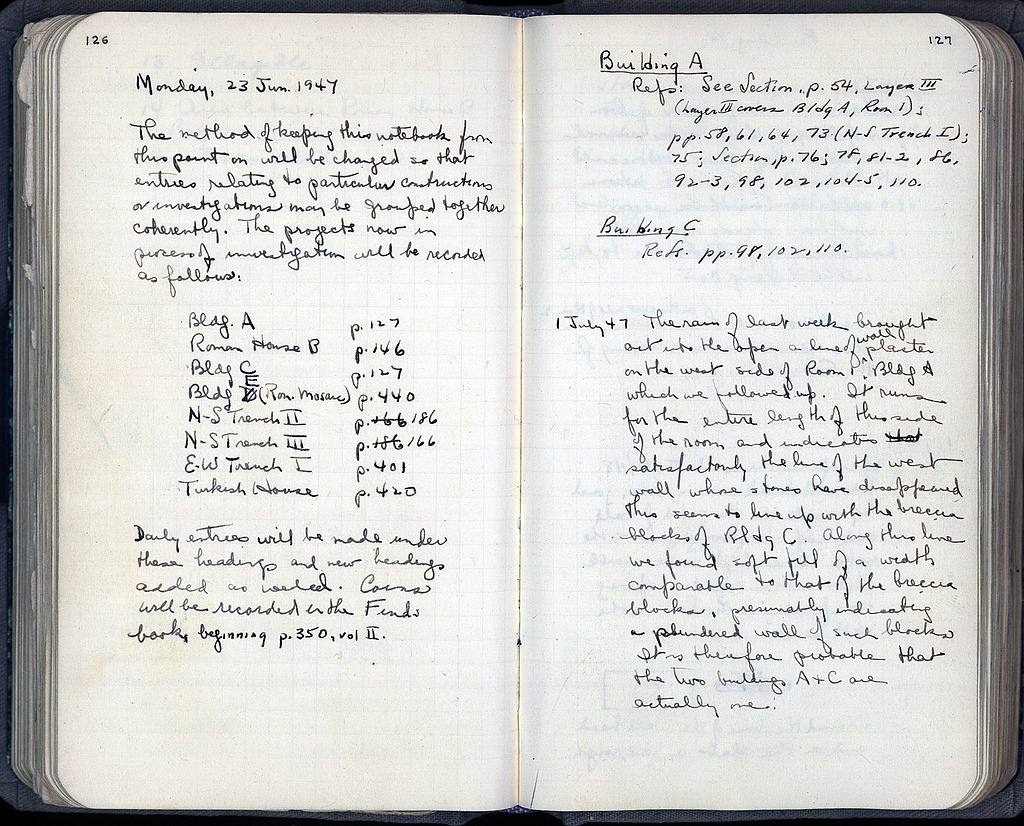 126
Monday, 23 Jun. 1947
The method of keeping this notebook from
this point on will be changed so that
entries relating to particular constructions
or investigations may be grouped together
coherently. The projects now in
process of investigation will be recorded
as follows:
Bldg. A p. 127
Roman House B p. 146
Bldg C p. 127
Bldg E (Rom. Mosaic) p. 440
N-S Trench II p. 166 186
N-S Trench III p. 186 166
E-W Trench I p. 401
Turkish House p. 420
Daily entries will be made under
these headings and new headings
added as needed. Coins
will be recorded in the Finds
book, beginning p. 350, vol II.
127
Building A
Refs: See Section, p. 54, Layer III
(Layer III covers Bldg A, Room 1);
pp. 58, 61, 64, 73 (N-S Trench I);
75; Section, p. 76; 78, 81-2, 86,
92-3, 98, 102, 104-5, 110.
Building C
Refs. pp. 98, 102, 110.
1 July 47 The rain of last week brought
out into the open a line of wall plaster
on the west side of Room 1, Bldg A
which we followed up. It runs
for the entire length of this side
of the room and indicates that
satisfactorily the line of the west
wall whose stones have disappeared
This seems to line up with the breccia
blocks of Bldg C. Along this line
we found soft fill of a width
comparable to that of the breccia
blocks, presumably indicating
a plundered wall of such blocks
It is therefore probable that
the two buildings A + C are
actually one.